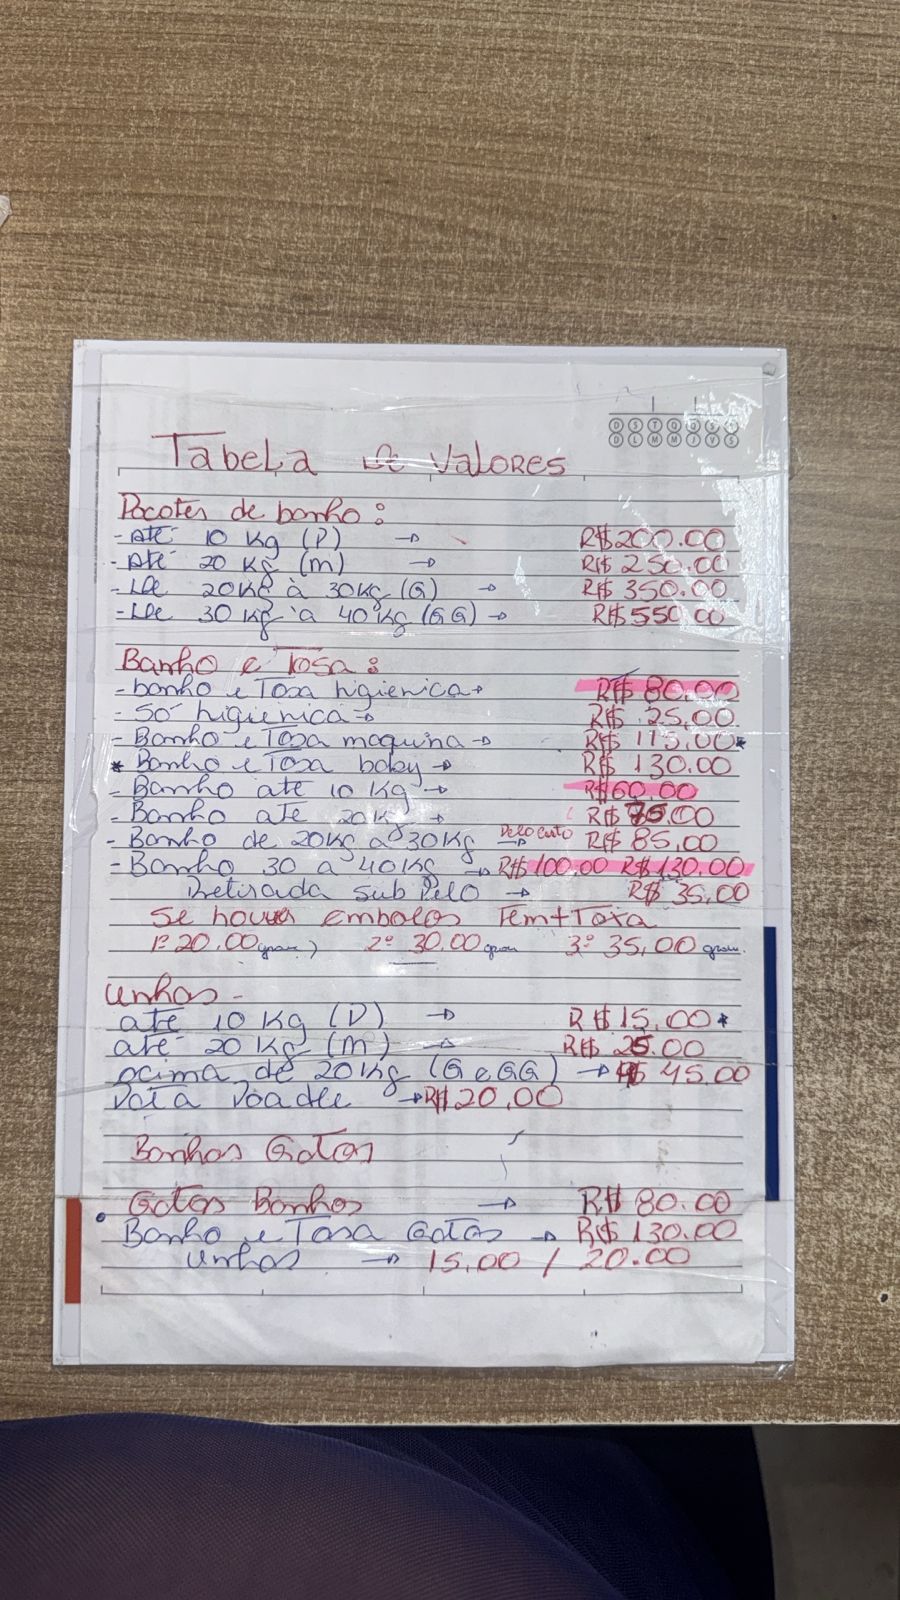 D S T Q Q S S
D L M M J V S
Tabela de Valores
Pacotes de banho:
- Até 10 Kg (P) → R$200.00
- Até 20 Kg (m) → R$ 250.00
- De 20Kg à 30Kg (G) → R$ 350.00
- De 30 Kg à 40 Kg (GG) → R$550.00
Banho e Tosa:
- banho e Tosa higienica → R$ 80.00
- Só higienica → R$ 25,00
- Banho e Tosa maquina → R$ 115,00*
* Banho e Tosa baby → R$ 130.00
- Banho até 10 Kg → R$60.00
- Banho até 20Kg → R$ 75.00
- Banho de 20Kg a 30Kg → Pelo curto R$ 85,00
- Banho 30 a 40Kg → R$100.00 R$130.00
Retirada sub Pelo → R$ 35,00
Se houver embolos Tem + Taxa
1º 20.00 grau) 2º 30.00 grau 3º 35,00 grau.
Unhas -
até 10 Kg (P) → R$15,00*
até 20 Kg (m) → R$ 25.00
acima de 20Kg (G e GG) → R$ 45.00
Pata Poodle → R$20,00
Banhos Gatos
Gatos Banhos → R$ 80.00
Banho e Tosa Gatos → R$130.00
Unhas → 15,00 / 20.00